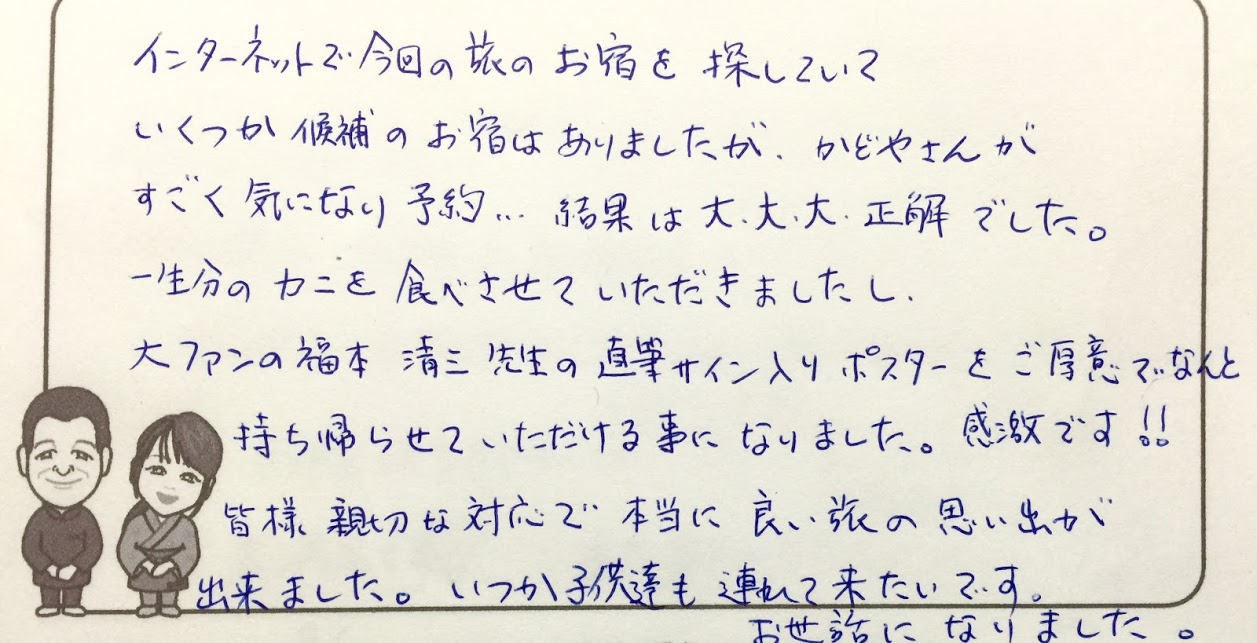 インターネットで今回の旅のお宿を探していて
いくつか候補のお宿はありましたが、かどやさんが
すごく気になり予約… 結果は大、大、大、正解でした。
一生分のカニを食べさせていただきましたし、
大ファンの福本清三先生の直筆サイン入りポスターをご厚意でなんと
持ち帰らせていただける事になりました。感激です!!
皆様親切な対応で本当に良い旅の思い出が
出来ました。いつか子供達も連れて来たいです。
お世話になりました。